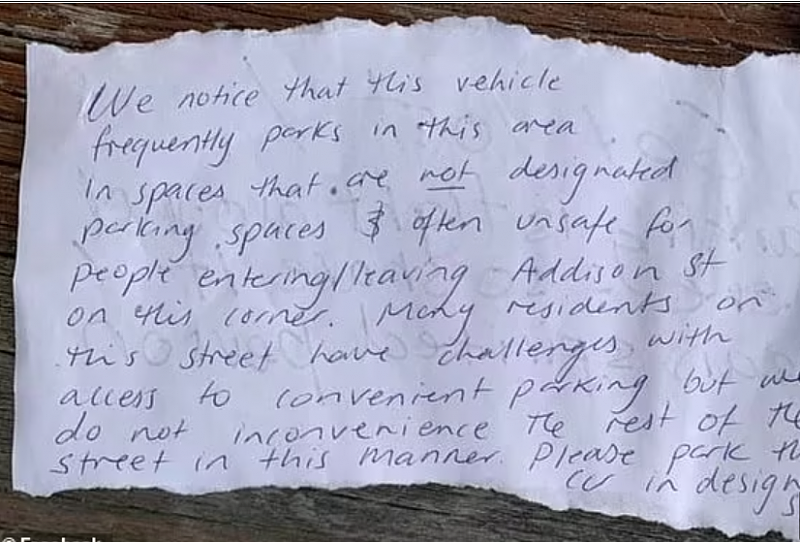 We notice that this vehicle
frequently parks in this area
in spaces that are not designated
parking spaces & often unsafe for
people entering/leaving Addison St
on this corner. Many residents on
this street have challenges with
access to convenient parking but we
do not inconvenience the rest of the
street in this manner. Please park th
car in design
s